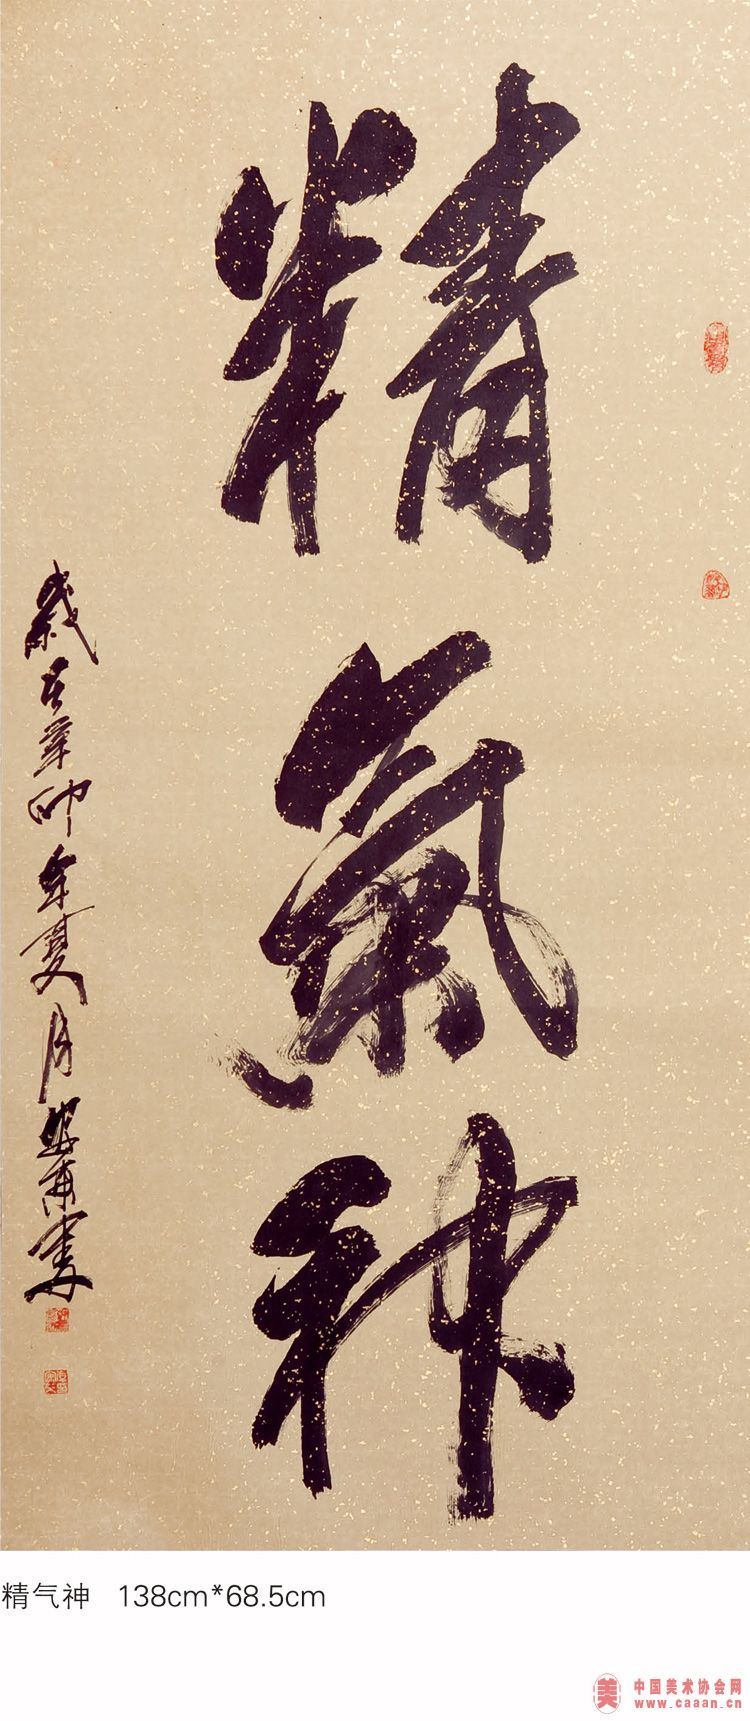 精氣神
歲在辛卯年夏月
書
精气神 138cm*68.5cm
美 中国美术协会网
www.caaan.cn